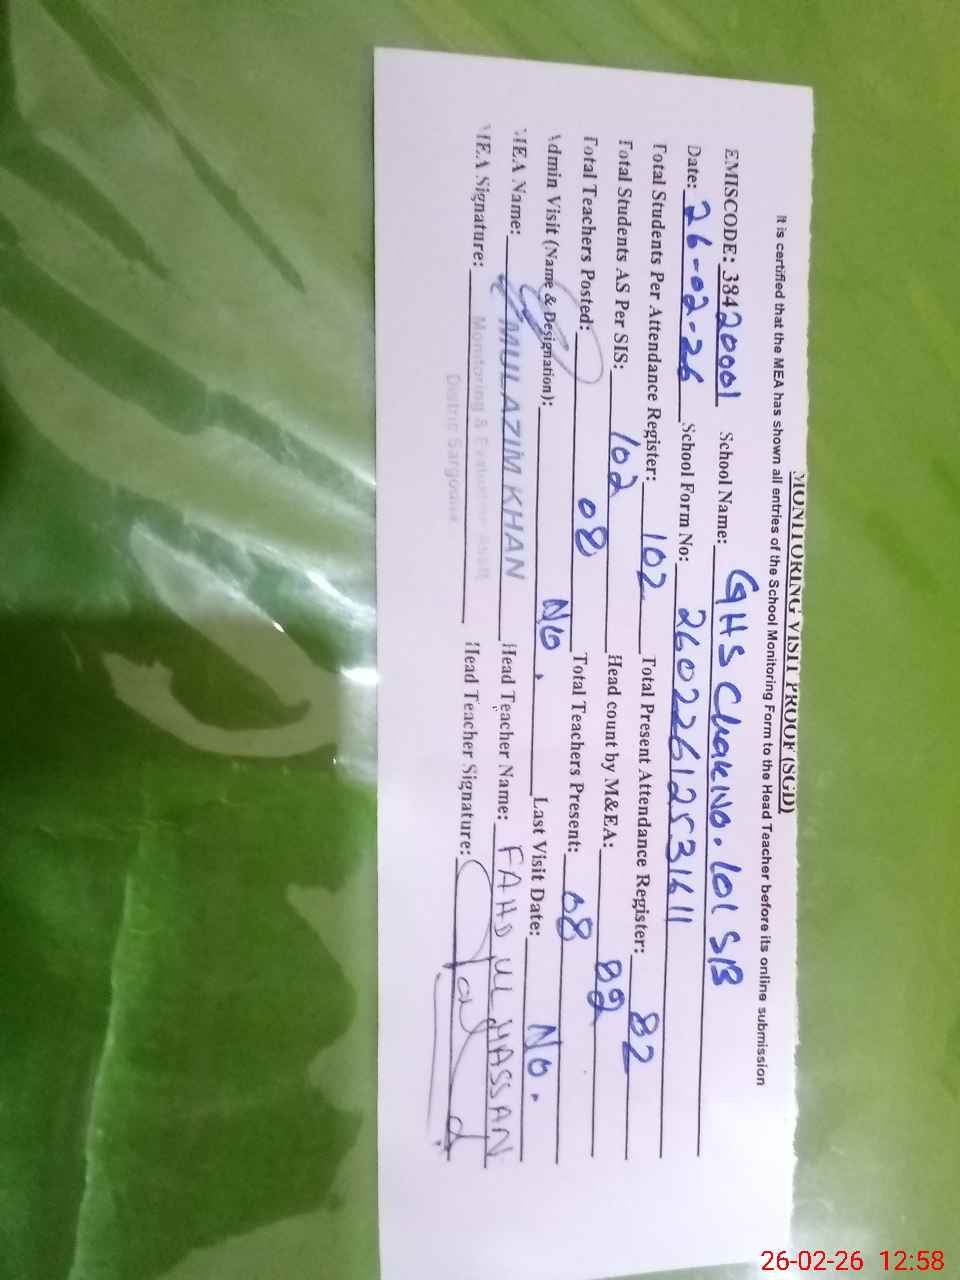 MONITORING VISIT PROOF (SGD)
It is certified that the MEA has shown all entries of the School Monitoring Form to the Head Teacher before its online submission
EMISCODE: 38420001 School Name: GHS Chak No. 101 SB
Date: 26-02-26 School Form No: 26022612531611
Total Students Per Attendance Register: 102 Total Present Attendance Register: 82
Total Students AS Per SIS: 102 Head count by M&EA: 82
Total Teachers Posted: 08 Total Teachers Present: 08
Admin Visit (Name & Designation): No. Last Visit Date: No.
MEA Name: MULAZIM KHAN Head Teacher Name: FAHD UL HASSAN
MEA Signature: Monitoring & Evaluation Asstt Head Teacher Signature:
District Sargodha
26-02-26 12:58